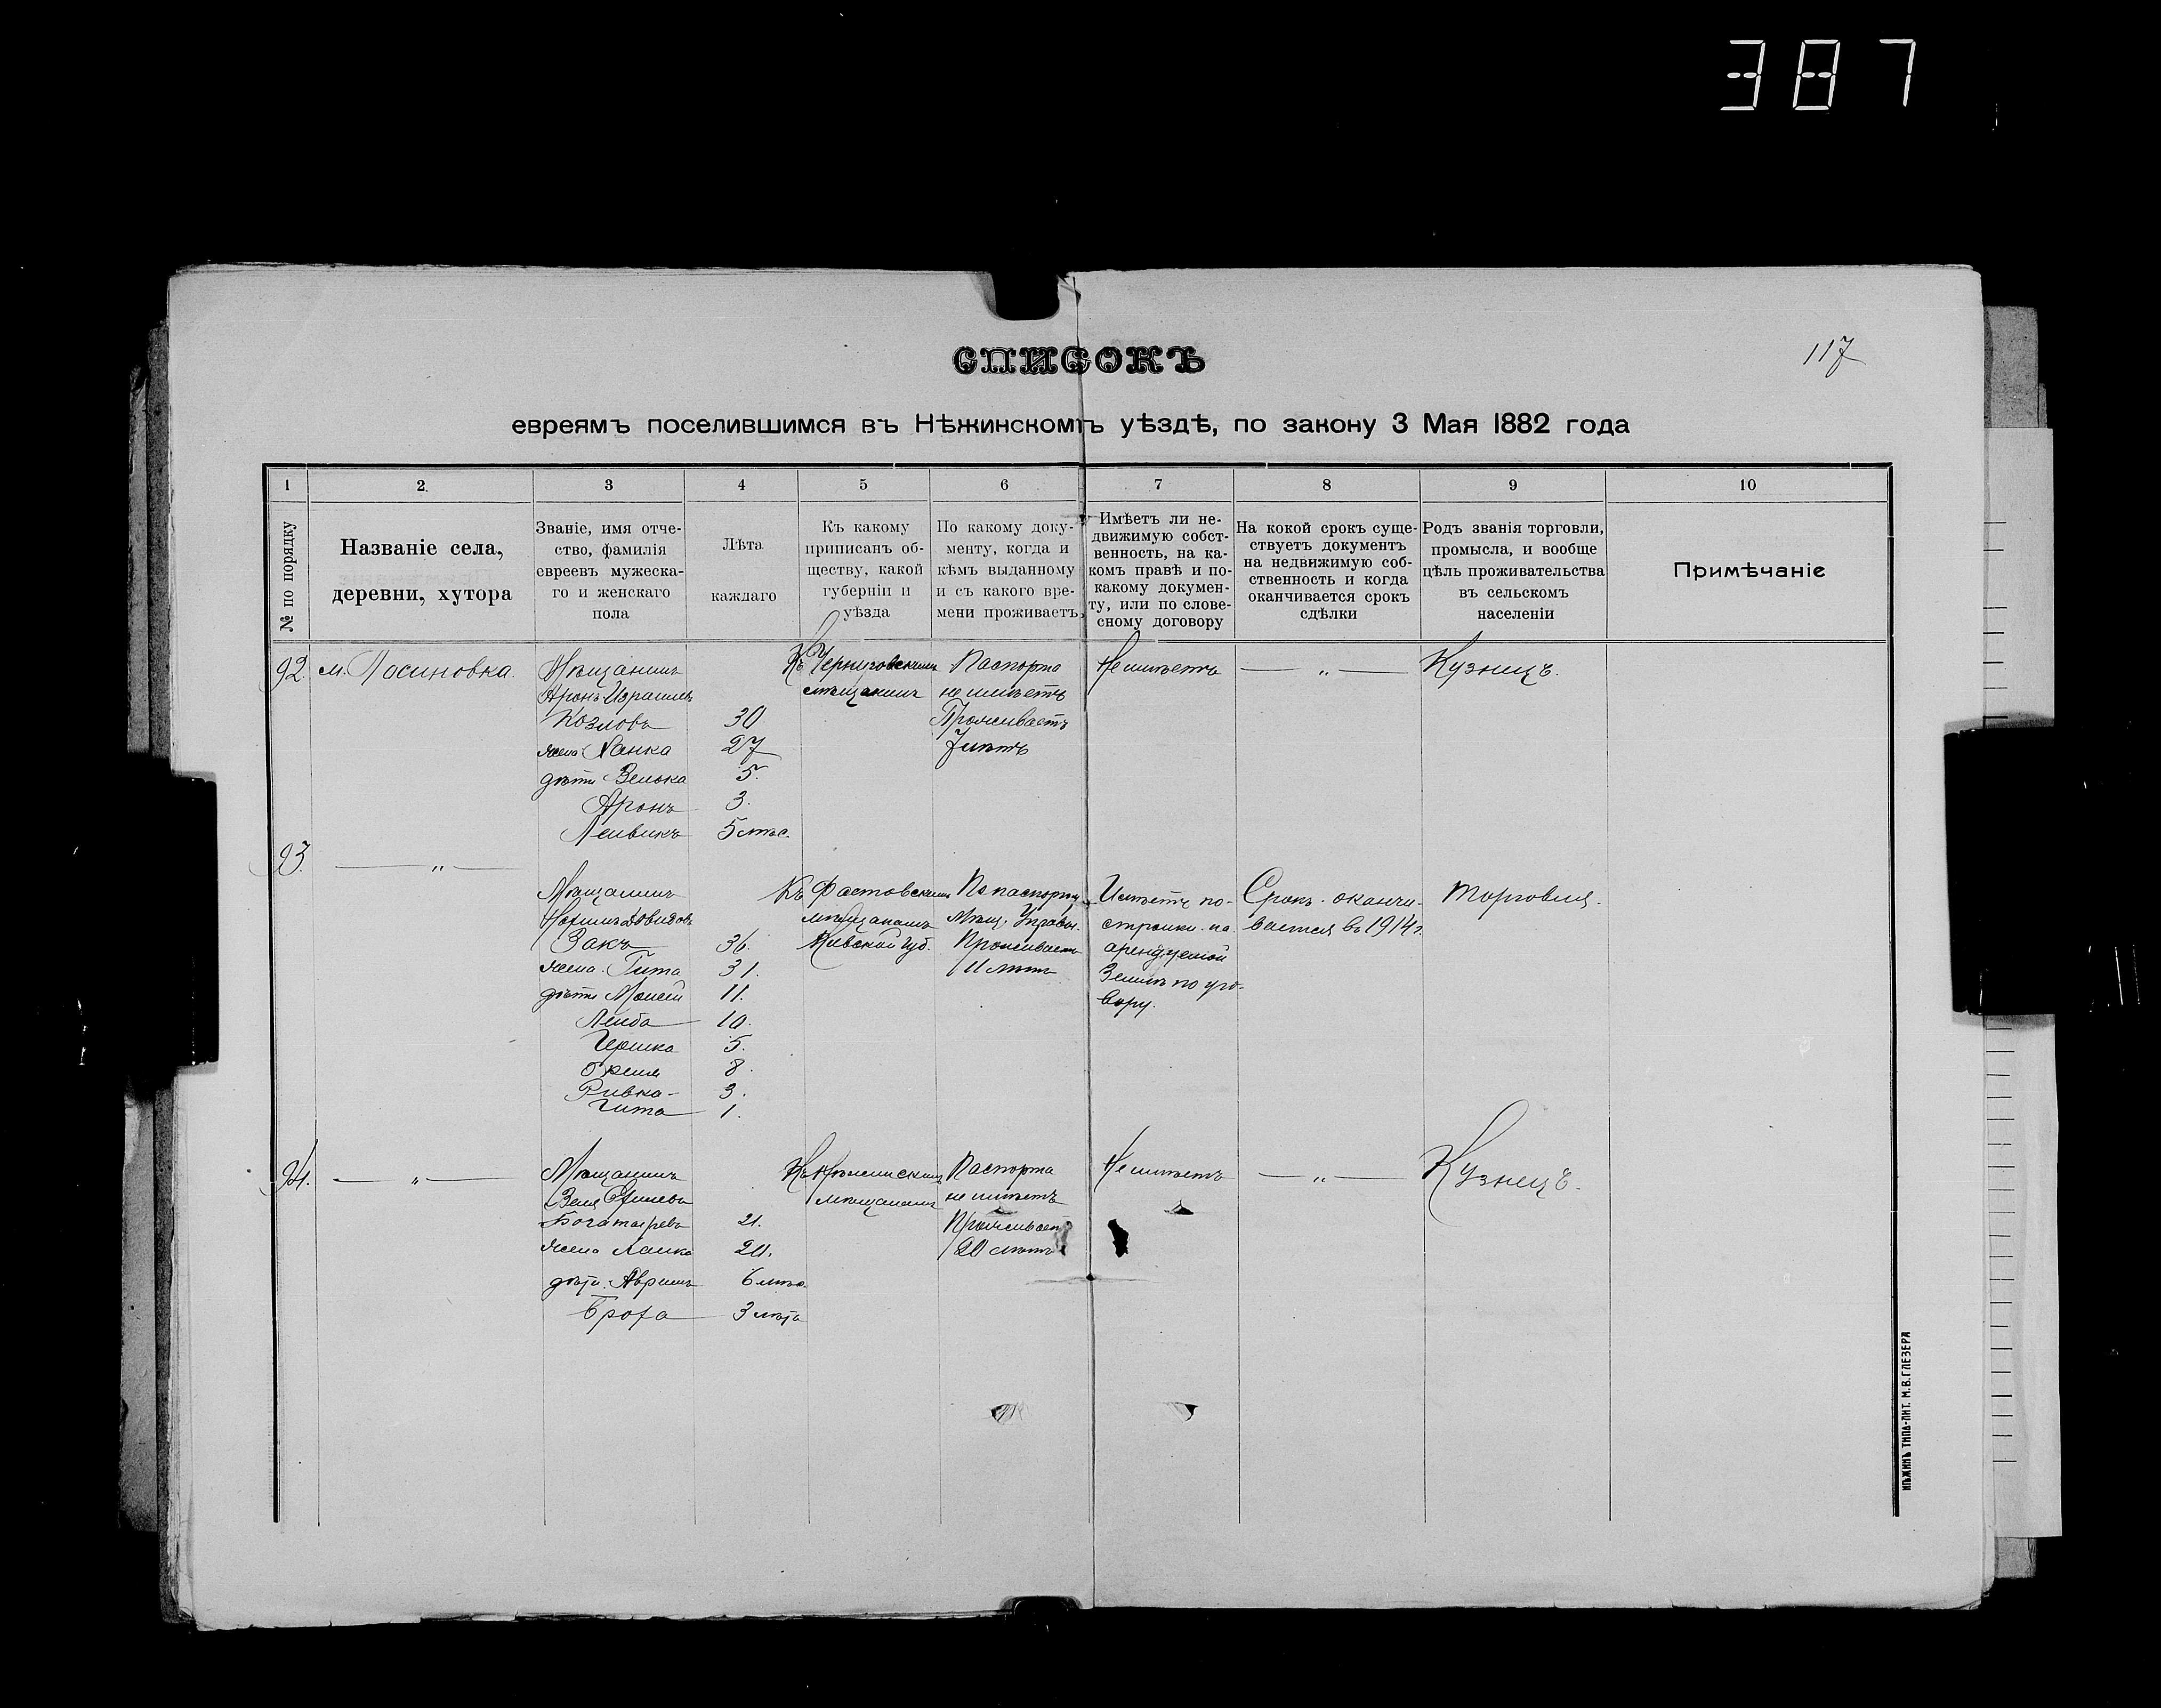 387
117
СПИСОКЪ
евреямъ поселившимся въ Нѣжинскомъ уѣздѣ, по закону 3 Мая 1882 года
1 2. 3 4 5 6 7 8 9 10
№ по порядку
Названіе села,
деревни, хутора
Званіе, имя отче-
ство, фамилія
евреевъ мужеска-
го и женскаго
пола
Лѣта
каждаго
Къ какому
приписанъ об-
ществу, какой
губерніи и
уѣзда
По какому доку-
менту, когда и
кѣмъ выданному
и съ какого вре-
мени проживаетъ
Имѣетъ ли не-
движимую собст-
венность, на ка-
комъ правѣ и по-
какому докумен-
ту, или по слове-
сному договору
На кокой срокъ суще-
ствуетъ документъ
на недвижимую соб-
ственность и когда
оканчивается срокъ
сдѣлки
Родъ званія торговли,
промысла, и вообще
цѣль проживательства
въ сельскомъ
населеніи
Примѣчаніе
92. м. Лосиновка.
Мѣщанинъ
Аронъ Израилевъ
Козловъ 30
жена Ханка 27
дѣти Зелька 5.
Аронъ 3.
Лейвикъ 5 мѣс.
Къ Черниговскимъ
мѣщанамъ
Паспорта
не имѣетъ
Проживаетъ
7 лѣтъ
Не имѣетъ
— „ —
Кузнецъ.
93. — „ —
Мѣщанинъ
Довидовъ
Закъ 36.
жена Гита 31.
дѣти Моисей 11.
Лейба 10.
Гершка 5.
8.
Ривка 3.
Гита 1.
Къ Фастовскимъ
мѣщанамъ
Кіевской губ.
По паспорту
Мѣщ. Управы.
Проживаетъ
11 лѣтъ
Имѣетъ по-
стройки на
арендуемой
Землѣ по уго-
вору.
Срокъ оканчи-
вается въ 1914 г.
Торговля.
94. — „ —
Мѣщанинъ
Богатыревъ 21.
жена 20.
дѣти Аврумъ 6 мѣс.
Броха 3 лѣта
Къ Нѣжинскимъ
мѣщанамъ
Паспорта
не имѣетъ
Проживаетъ
20 лѣтъ
Не имѣетъ
— „ —
Кузнецъ.
НѢЖИНЪ ТИПО-ЛИТ. М. В. ГЛЕЗЕРА